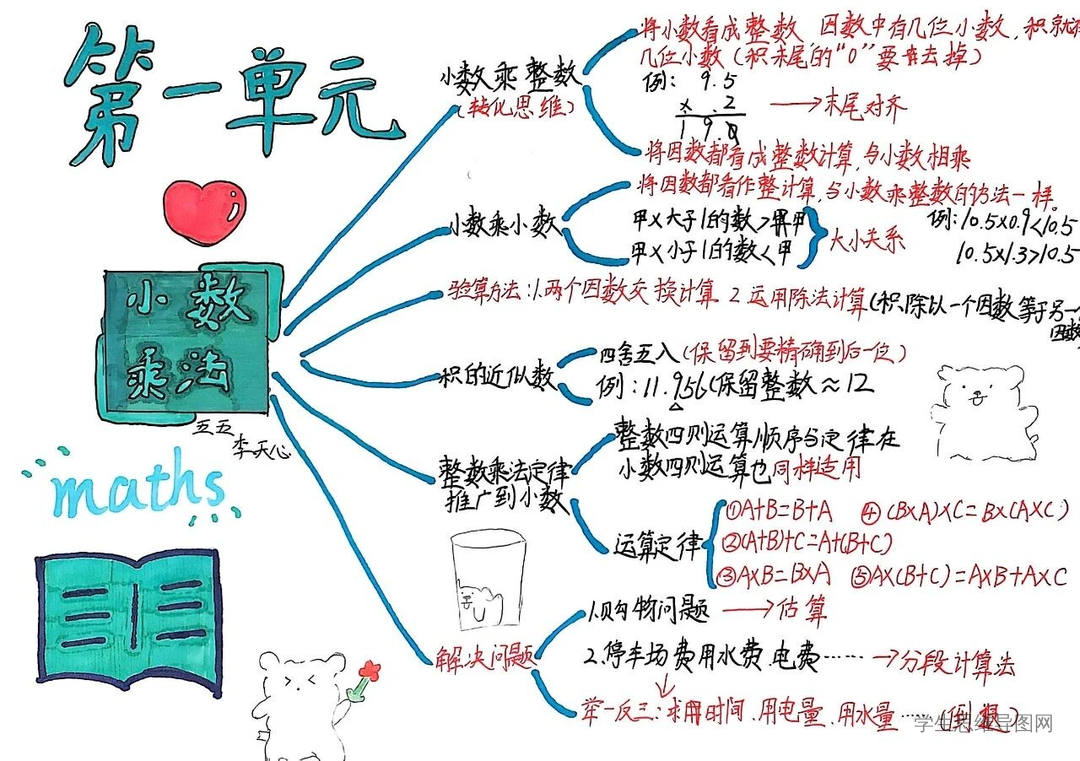 第一单元
小数
乘法
五五
李天心
maths
小数乘整数
(转化思维)
将小数看成整数 因数中有几位小数,积就有
几位小数(积末尾的"0"要去掉)
例: 9.5
× .2
19.0
→末尾对齐
将因数都看成整数计算,与小数相乘
小数乘小数
将因数都看作整计算,与小数乘整数的方法一样。
甲×大于1的数>甲
甲×小于1的数<甲
大小关系
例:10.5×0.9<10.5
10.5×1.3>10.5
验算方法:1.两个因数交换计算 2.运用除法计算(积除以一个因数等于另一个
因数
积的近似数
四舍五入(保留到要精确到后一位)
例:11.956(保留整数≈12
整数乘法定律
推广到小数
整数四则运算顺序与定律在
小数四则运算也同样适用
运算定律
①A+B=B+A ④(B×A)×C=B×(A×C)
②(A+B)+C=A+(B+C)
③A×B=B×A ⑤A×(B+C)=A×B+A×C
解决问题
1.购物问题→估算
2.停车场费用水费、电费……→分段计算法
举一反三:求用时间、用电量、用水量……(倒推)
学生思维导图网